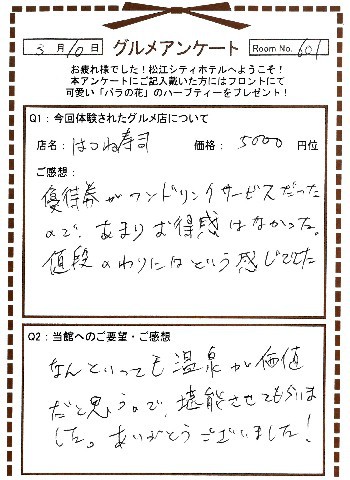 3月10日 グルメアンケート Room No. 601
お疲れ様でした！松江シティホテルへようこそ！
本アンケートにご記入戴いた方にはフロントにて
可愛い「バラの花」のハーブティーをプレゼント！
Q1：今回体験されたグルメ店について
店名：はつね寿司 価格： 5000 円位
ご感想：
優待券がワンドリンクサービスだった
ので、あまりお得感はなかった。
値段のわりにはという感じでした
Q2：当館へのご要望・ご感想
なんといっても温泉が価値
だと思うので、堪能させてもらいま
した。ありがとうございました！